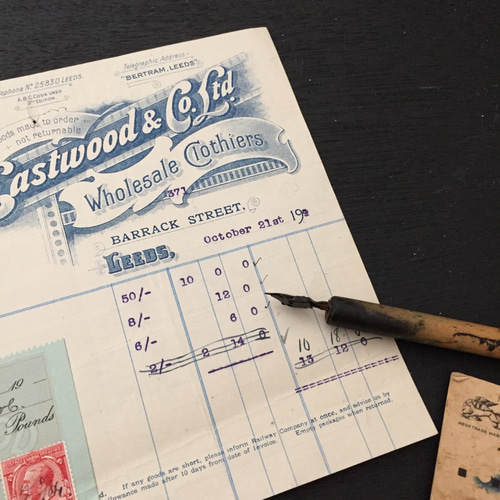 Telephone Nº 25830 LEEDS.
A.B.C CODE USED
5TH EDITION
Telegraphic Address—
"BERTRAM, LEEDS"
Goods made to order
not returnable
Eastwood & Co. Ltd.
Wholesale Clothiers
371
BARRACK STREET,
LEEDS, October 21st 19
50/- 10 0 0
8/- 12 0
6/- 6 0
2/- 2 14 0
10 18
13 12 0
19
Pounds
If any goods are short, please inform Railway Company at once, and advise us by
allowance made after 10 days from date of Invoice. Empty packages when returned.